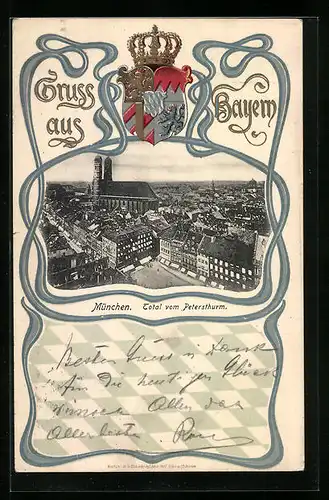 Gruss
aus
Bayern
München. Total vom Petersthurm.
Besten Gruss u. Dank
für die
Glück
wünsche Allen das
Allerbeste.